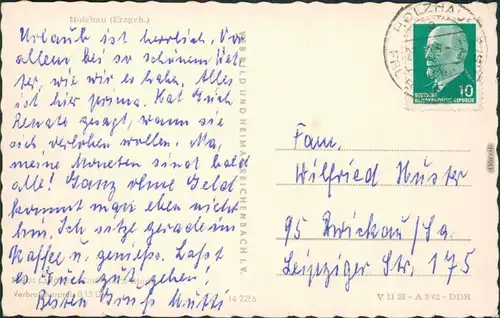 Holzhau (Erzgeb.)
Urlaub ist herrlich. Vor
allem bei so schönem Wet-
ter, wie wir es habn. Alles
ist hier prima. Hat Euch
Renate gesagt, wann sie
sich verloben wollen. Na,
meine Moneten sind bald
alle! Ganz ohne Geld
kommt man eben nicht
hin. Ich sitze gerade im
Kaffee u. genieße. Laßt
es Euch gut gehen!
Besten Gruß Mutti
14 2286
VEB BILD UND HEIMAT REICHENBACH I. V.
HOLZHAU
10
DEUTSCHE
DEMOKRATISCHE REPUBLIK
Fam.
Wilfried Huster
95 Zwickau/Sa.
Leipziger Str. 175
V 11 28 - A 3/62 - DDR